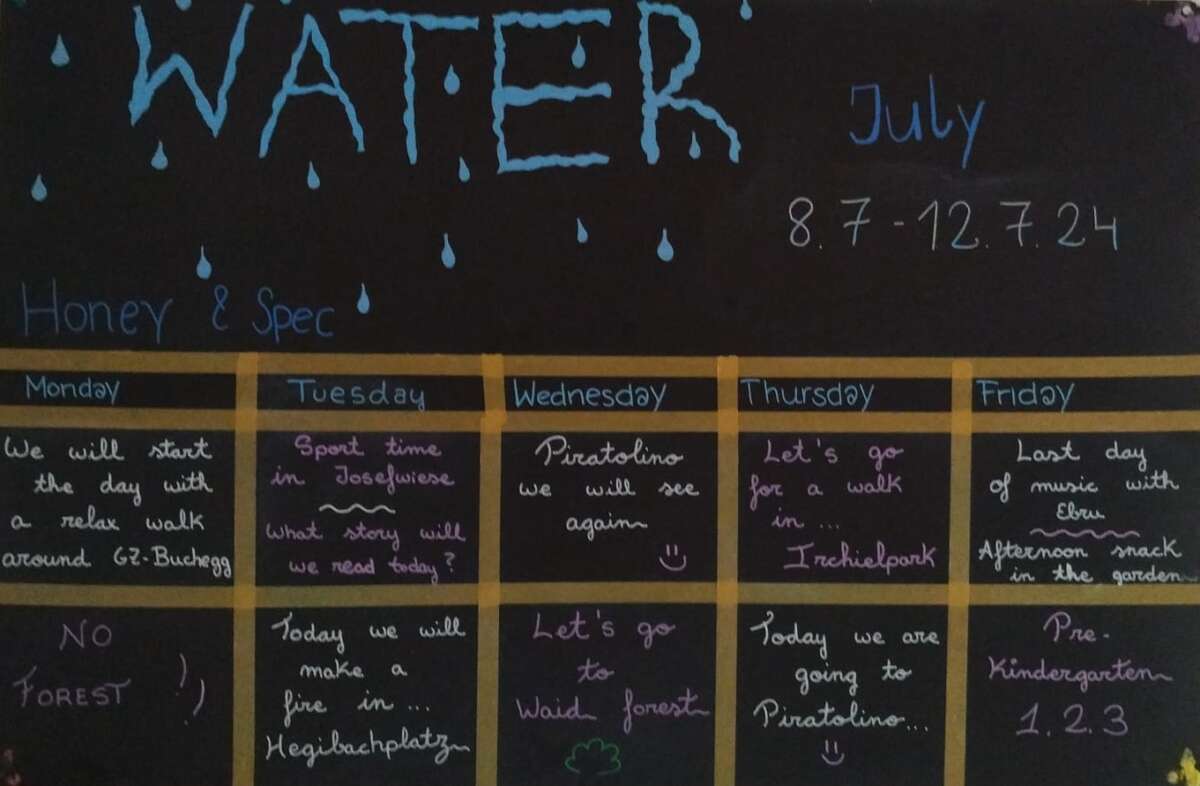 WATER
July
8.7-12.7.24
Honey & Spec
Monday
Tuesday
Wednesday
Thursday
Friday
We will start
the day with
a relax walk
around GZ-Buchegg
Sport time
in Josefwiese
What story will
we read today?
Piratolino
we will see
again
Let's go
for a walk
in ...
Irchielpark
Last day
of music with
Ebru
Afternoon snack
in the garden
NO
FOREST
Today we will
make a
fire in ...
Hegibachplatz
Let's go
to
Waid forest
Today we are
going to
Piratolino...
Pre-
Kindergarten
1.2.3